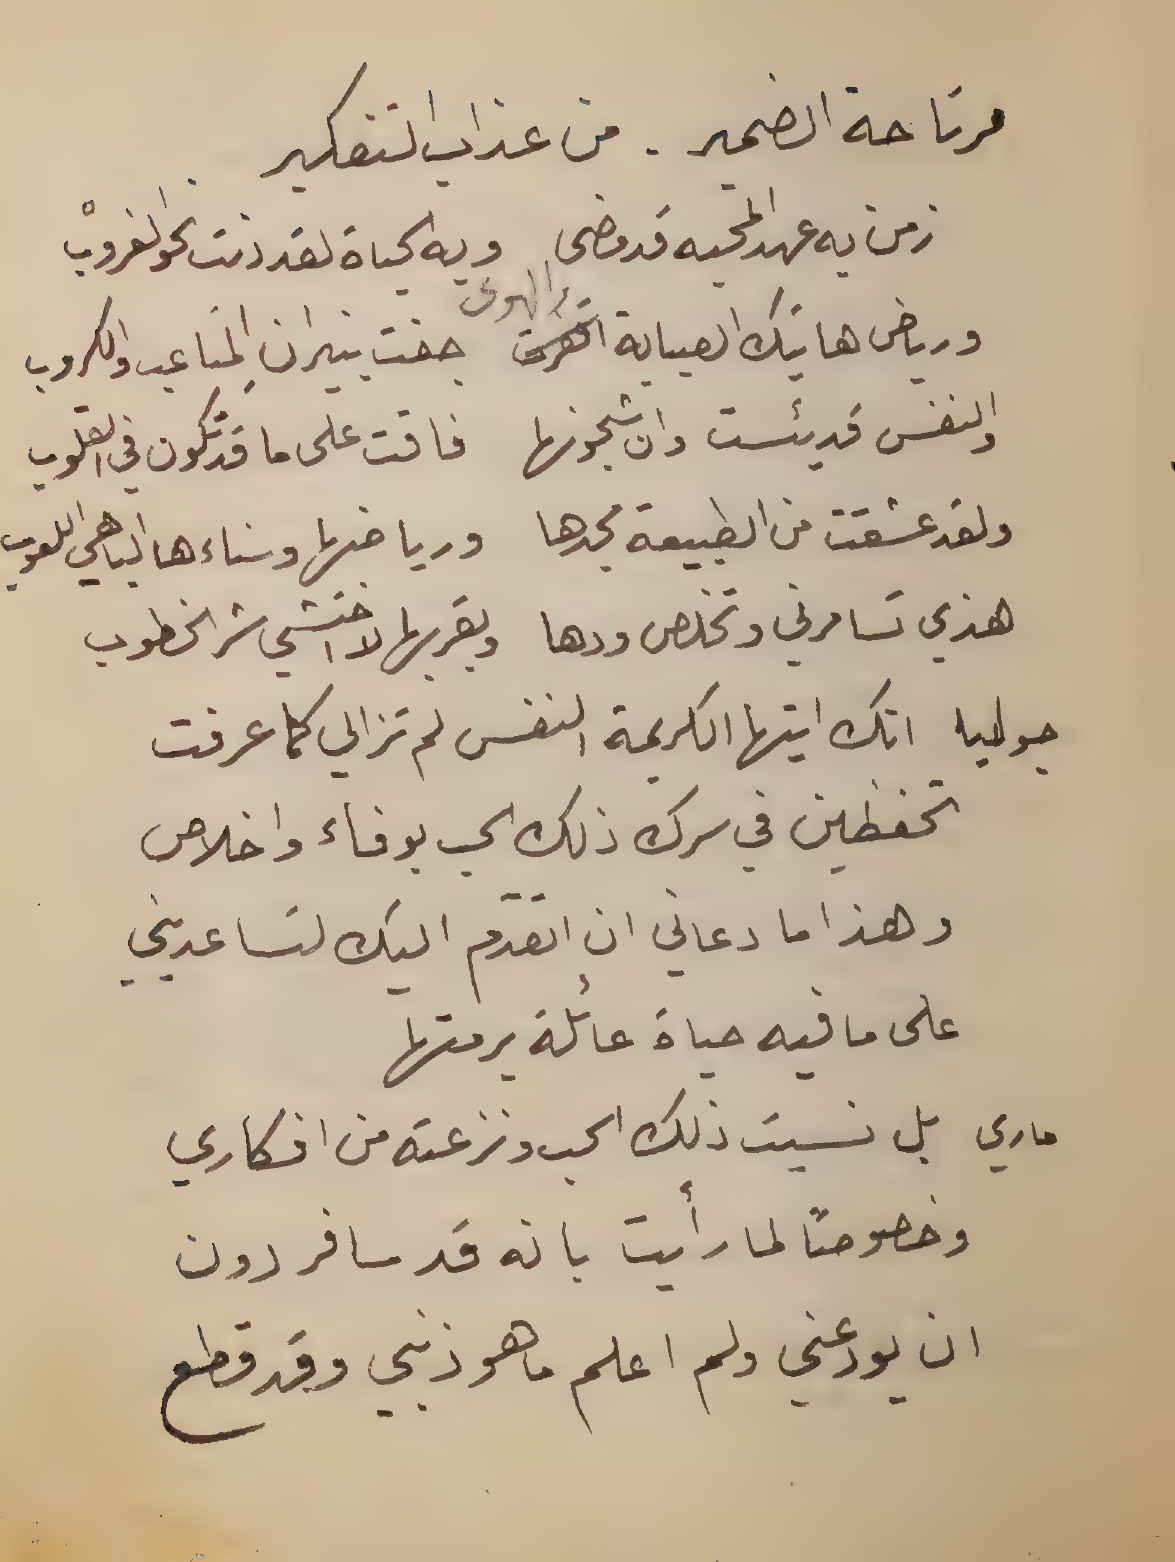 مرتاحة الضمير . من عذاب التفكير
زمن به عهد المحبه قد مضى وبه الحياة لقد دنت نحو الغروبْ
والهوى
ورياض هاتيك الصبابة جفت بنيران المتاعب والكروب
والنفس قد يئست وان شجونها فاقت على ما قد تكون في القلوب
ولقد عشقت من الطبيعة مجدها ورياضها وسناءها الباهي اللعوب
هذي تسامرني وتخلص ودها وبقربها لا اختشي شر الخطوب
جوليا انك ايتها الكريمة النفس لم تزالي كما عرفت
تحفظين في سرك ذلك الحب بوفاء واخلاص
وهذا ما دعاني ان اتقدّم اليك لتساعديني
على ما فيه حياة عائلة برمتها
ماري بل نسيت ذلك الحب ونزعته من افكاري
وخصوصًا لما رأيت بانه قد سافر دون
ان يودعني ولم اعلم ما هو ذنبي وقد قطع